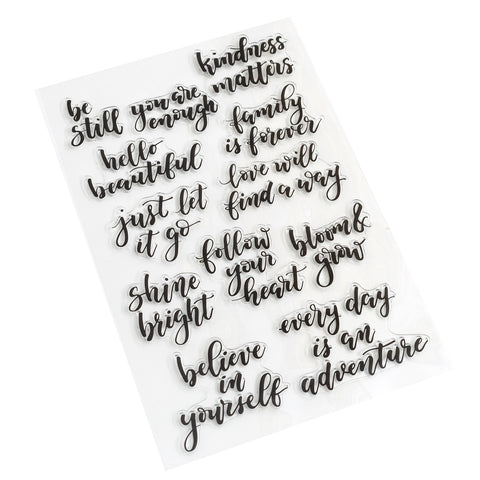 kindness
matters
be
still
you are
enough
family
is forever
hello
beautiful
love will
find a way
just let
it go
follow
your
heart
bloom &
grow
shine
bright
every day
is an
adventure
believe
in
yourself